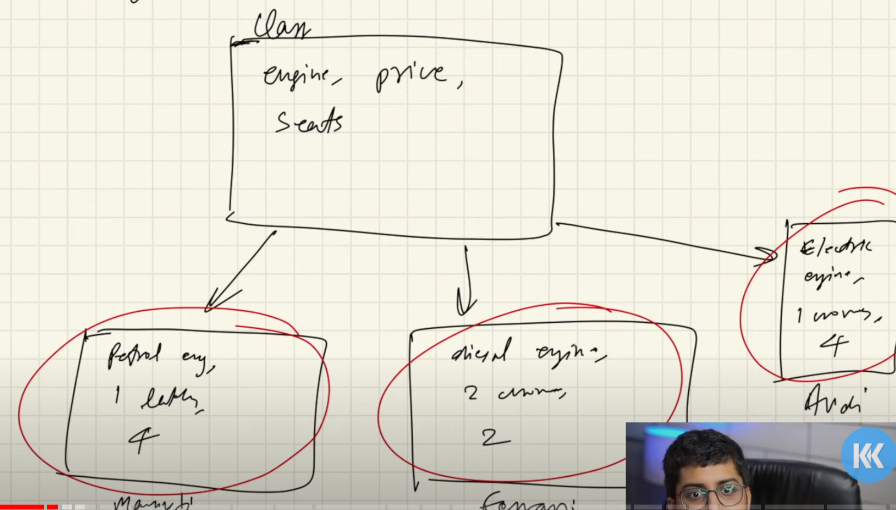 Class
engine, price,
Seats
Petrol eng,
1 lakh,
4
Maruti
diesel engine,
2 crores,
2
Ferrari
Electric
engine,
1 crores,
4
Audi
KK